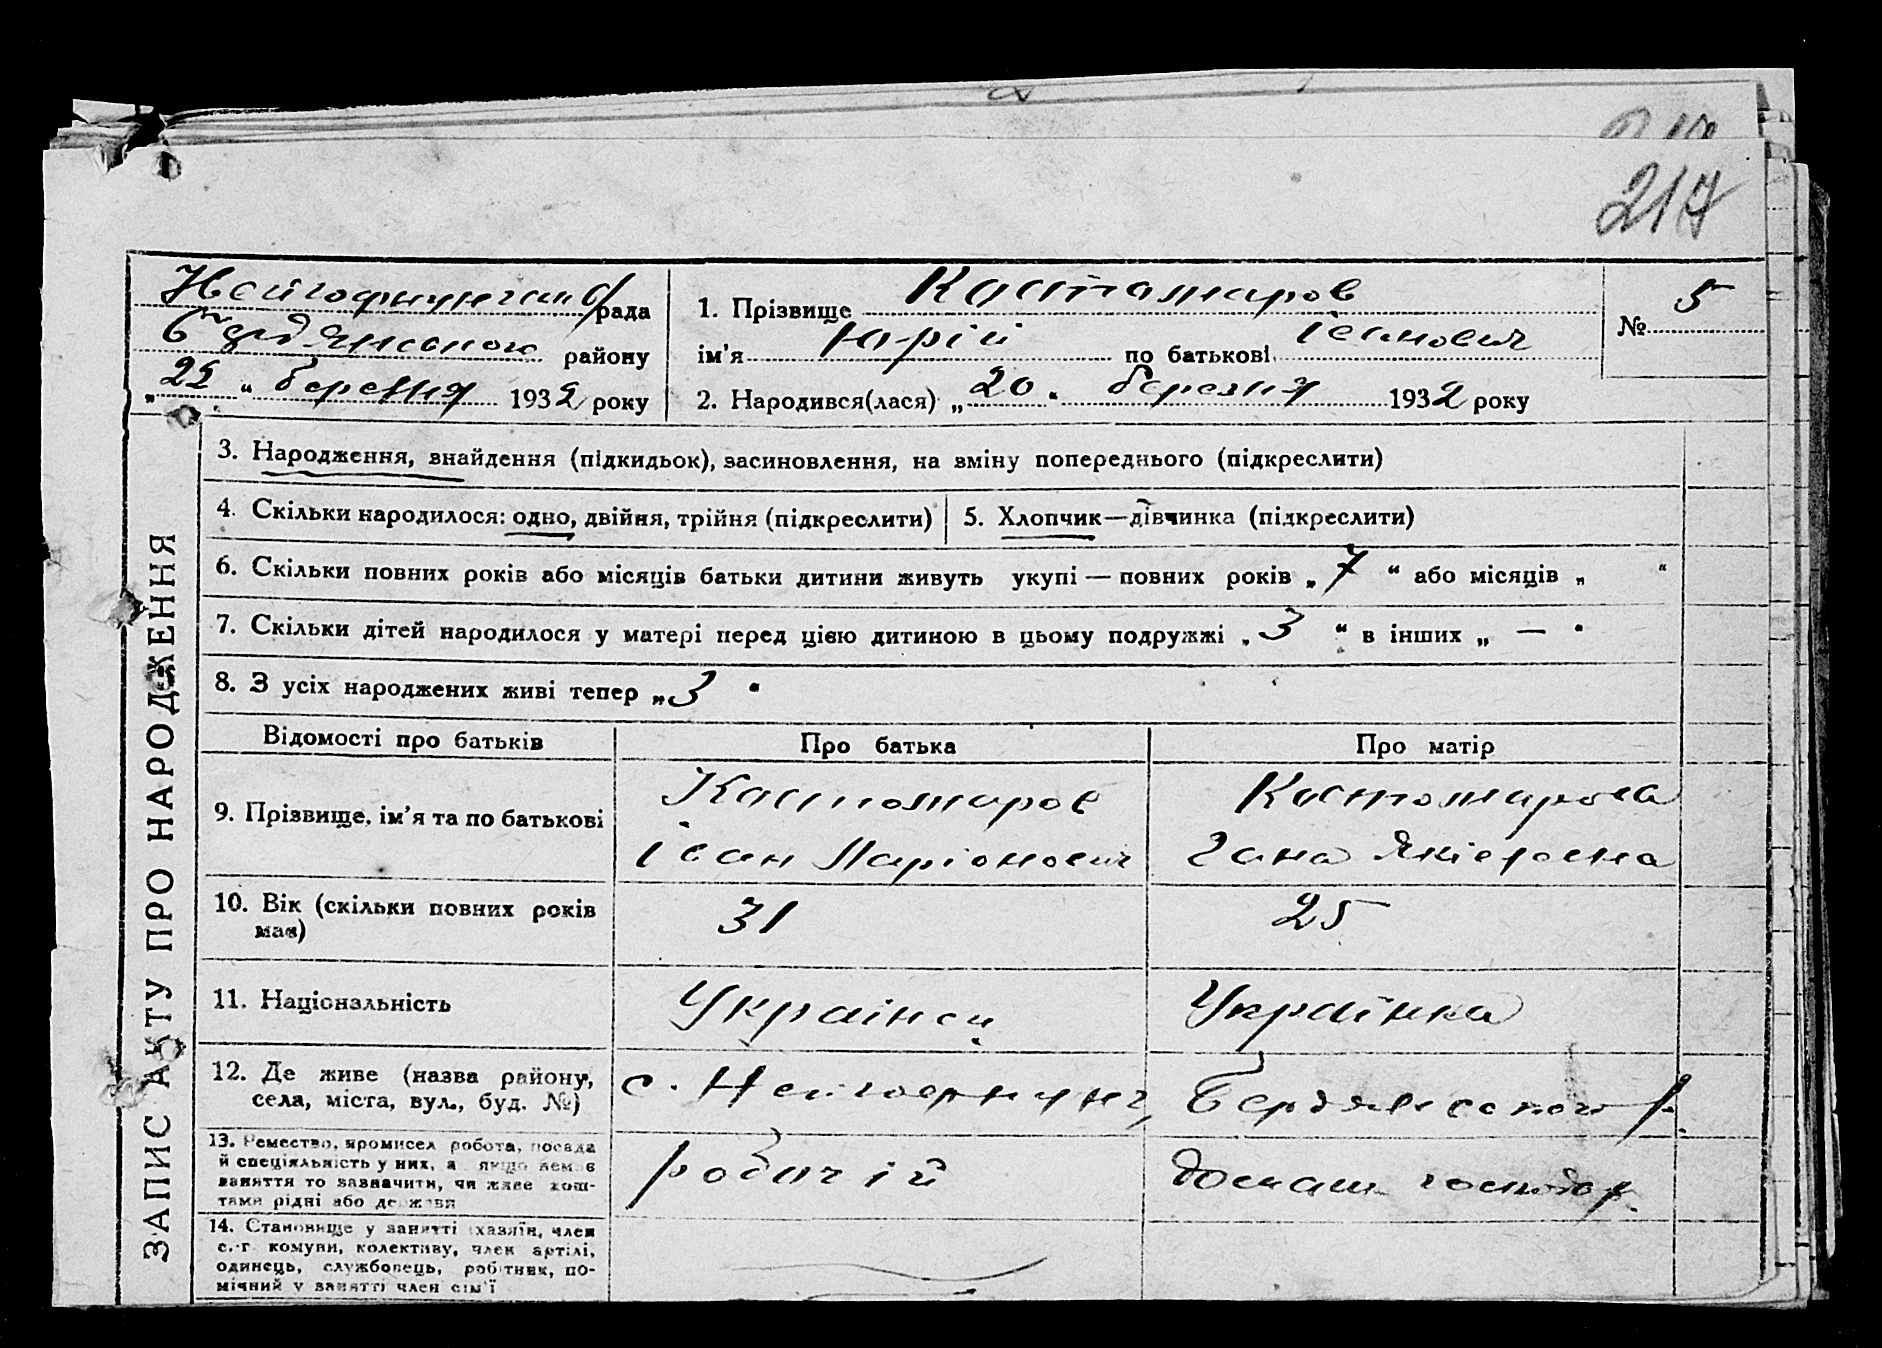 217
Нейгофнунгська рада
Бердянського району
„22“ березня 1932 року
1. Прізвище Костомаров
ім'я Юрій по батькові Іванович
2. Народився(лася) „20“ березня 1932 року
№ 5
ЗАПИС АКТУ ПРО НАРОДЖЕННЯ
3. Народження, знайдення (підкидьок), засиновлення, на зміну попереднього (підкреслити)
4. Скільки народилося: одно, двійня, трійня (підкреслити) 5. Хлопчик—дівчинка (підкреслити)
6. Скільки повних років або місяців батьки дитини живуть укупі — повних років „7“ або місяців „ “
7. Скільки дітей народилося у матері перед цією дитиною в цьому подружжі „3“ в інших „—“
8. З усіх народжених живі тепер „3“
Відомості про батьків Про батька Про матір
9. Прізвище, ім'я та по батькові
Костомаров
Іван Ларіонович
Костомарова
Гана
10. Вік (скільки повних років
має)
31
25
11. Національність
Українец
Українка
12. Де живе (назва району,
села, міста, вул., буд. №)
с. Нейгофнунг, Бердянського р.
13. Ремество, промисел робота, посада
й спеціяльність у них, а якщо немає
заняття то зазначити, чи живе кош-
тами рідні або держави
робочій
домаш. господар.
14. Становище у занятті (хазяїн, член
с.-г. комуни, колективу, член артілі,
одинець, службовець, робітник, по-
мічний у занятті член сім'ї